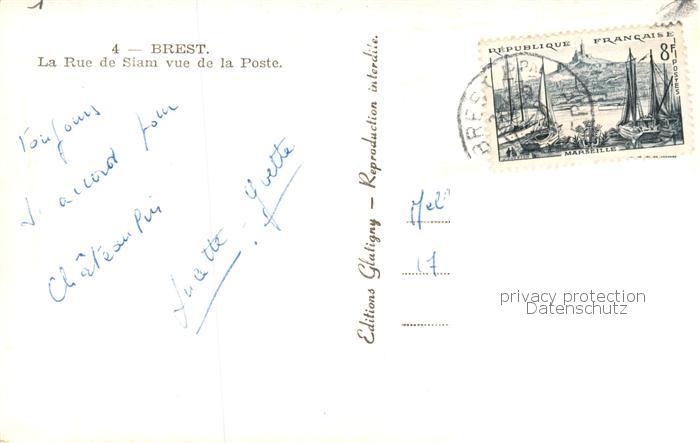 1
4 — BREST.
La Rue de Siam vue de la Poste.
Toujours
d'accord pour
Château Pin
Lucette - Yvette
Editions Glatigny — Reproduction interdite.
RÉPUBLIQUE FRANÇAISE
8F
POSTES
MARSEILLE
BREST
Mell
17
privacy protection
Datenschutz